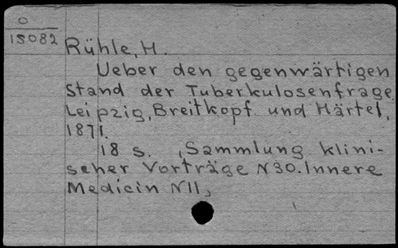 O
15082
Rühle, H.
Ueber den gegenwärtigen
Stand der Tuberkulosenfrage
Leipzig, Breitkopf und Härtel,
1871.
18 s. (Sammlung klini-
scher Vorträge N 30. Innere
Medicin N 11)